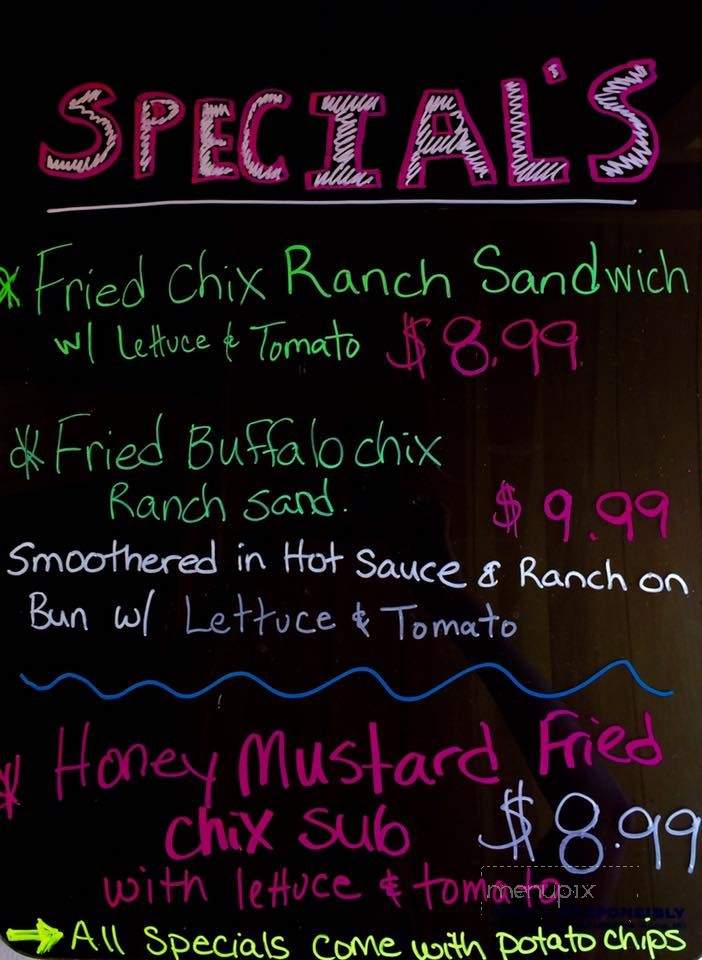 SPECIAL'S
Fried Chix Ranch Sandwich
w/ Lettuce & Tomato $8.99
Fried Buffalo chix
Ranch sand. $9.99
Smoothered in Hot Sauce & Ranch on
Bun w/ Lettuce & Tomato
Honey Mustard Fried
chix sub $8.99
with lettuce & tomato
menupix
→ All Specials come with potato chips